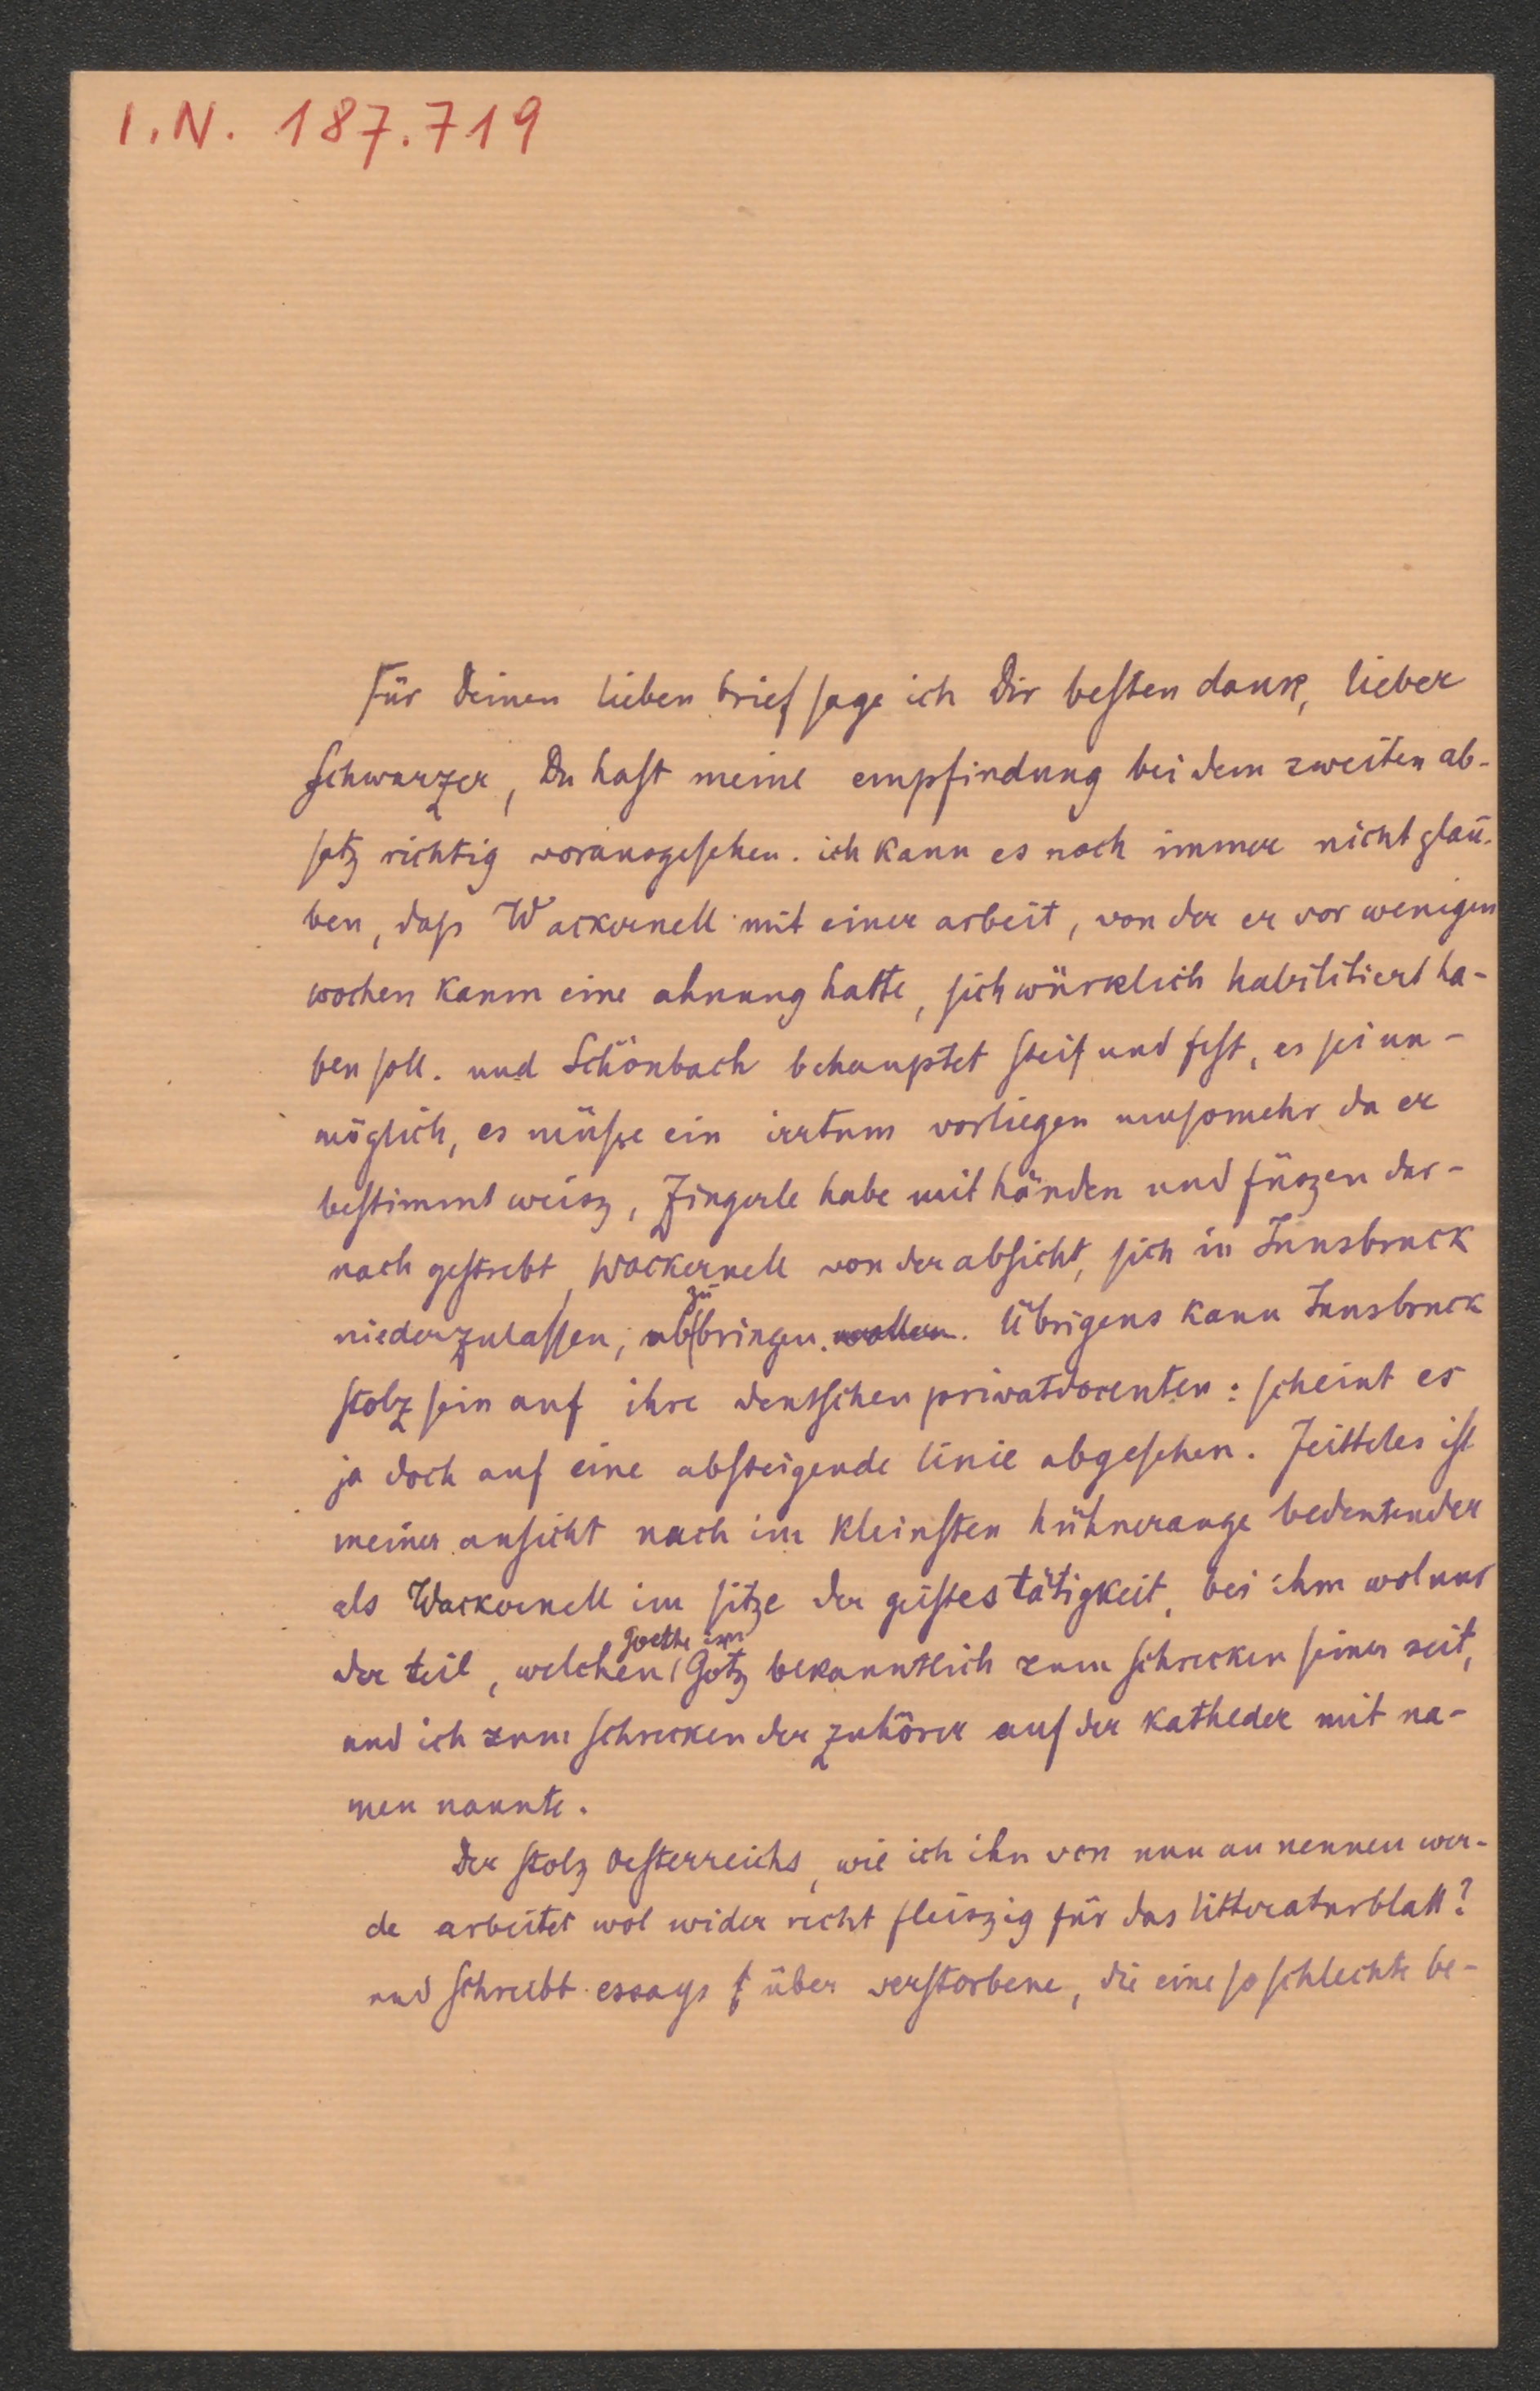 I.N. 187.719
Für Deinen lieben brief sage ich Dir besten dank, lieber
Schwarzer, Du hast meine empfindung bei dem zweiten ab-
satz richtig vorausgesehen. ich kann es noch immer nicht glau-
ben, dass Wackernell mit einer arbeit, von der er vor wenigen
wochen kaum eine ahnung hatte, sich würklich habilitiert ha-
ben soll. und Schönbach behauptet steif und fest, es sei un-
möglich, es müsse ein irrtum vorliegen umsomehr da er
bestimmt weisz, Zingerle habe mit händen und füszen dar-
nach gestrebt, Wackernell von der absicht, sich in Innsbruck
niederzulassen, abzubringen. wollen. Übrigens kann Innsbruck
stolz sein auf ihre deutschen privatdocenten: scheint es
ja doch auf eine absteigende linie abgesehen. Jeitteles ist
meiner ansicht nach im kleinsten hühnerauge bedeutender
als Wackernell im sitze der geistestätigkeit, bei ihm wol nur
der teil, welchen Goethe im Götz bekanntlich zum schrecken seiner zeit,
und ich zum schrecken der zuhörer auf der katheder mit na-
men nannte.
Der stolz Oesterreichs, wie ich ihn von nun an nennen wer-
de arbeitet wol wider recht fleiszig für das litteraturblatt?
und schreibt essays über verstorbene, die eine so schlechte be-